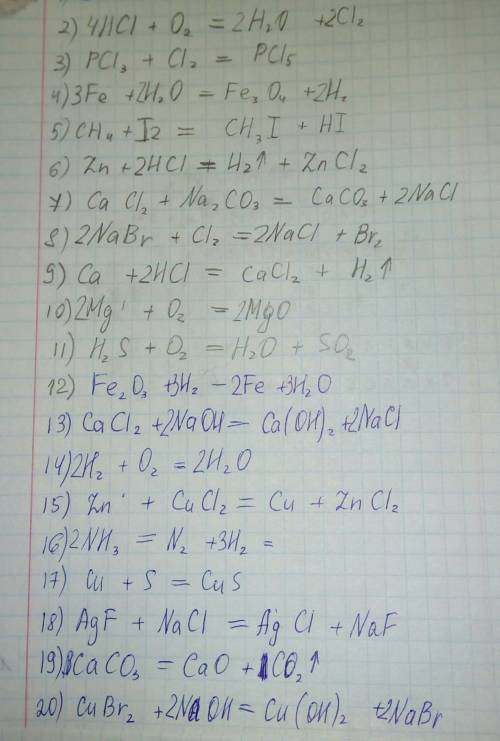 2) 4HCl + O₂ = 2H₂O +2Cl₂
3) PCl₃ + Cl₂ = PCl₅
4) 3Fe +2H₂O = Fe₃O₄ +2H₂
5) CH₄ + I₂ = CH₃I + HI
6) Zn + 2HCl = H₂↑ + ZnCl₂
7) CaCl₂ + Na₂CO₃ = CaCO₃ + 2NaCl
8) 2NaBr + Cl₂ = 2NaCl + Br₂
9) Ca +2HCl = CaCl₂ + H₂↑
10) 2Mg + O₂ = 2MgO
11) H₂S + O₂ = H₂O + SO₂
12) Fe₂O₃ +3H₂ – 2Fe +3H₂O
13) CaCl₂ +2NaOH = Ca(OH)₂ +2NaCl
14) 2H₂ + O₂ = 2H₂O
15) Zn + CuCl₂ = Cu + ZnCl₂
16) 2NH₃ = N₂ +3H₂ =
17) Cu + S = CuS
18) AgF + NaCl = AgCl + NaF
19) 1CaCO₃ = CaO + 1CO₂↑
20) CuBr₂ +2NaOH = Cu(OH)₂ +2NaBr